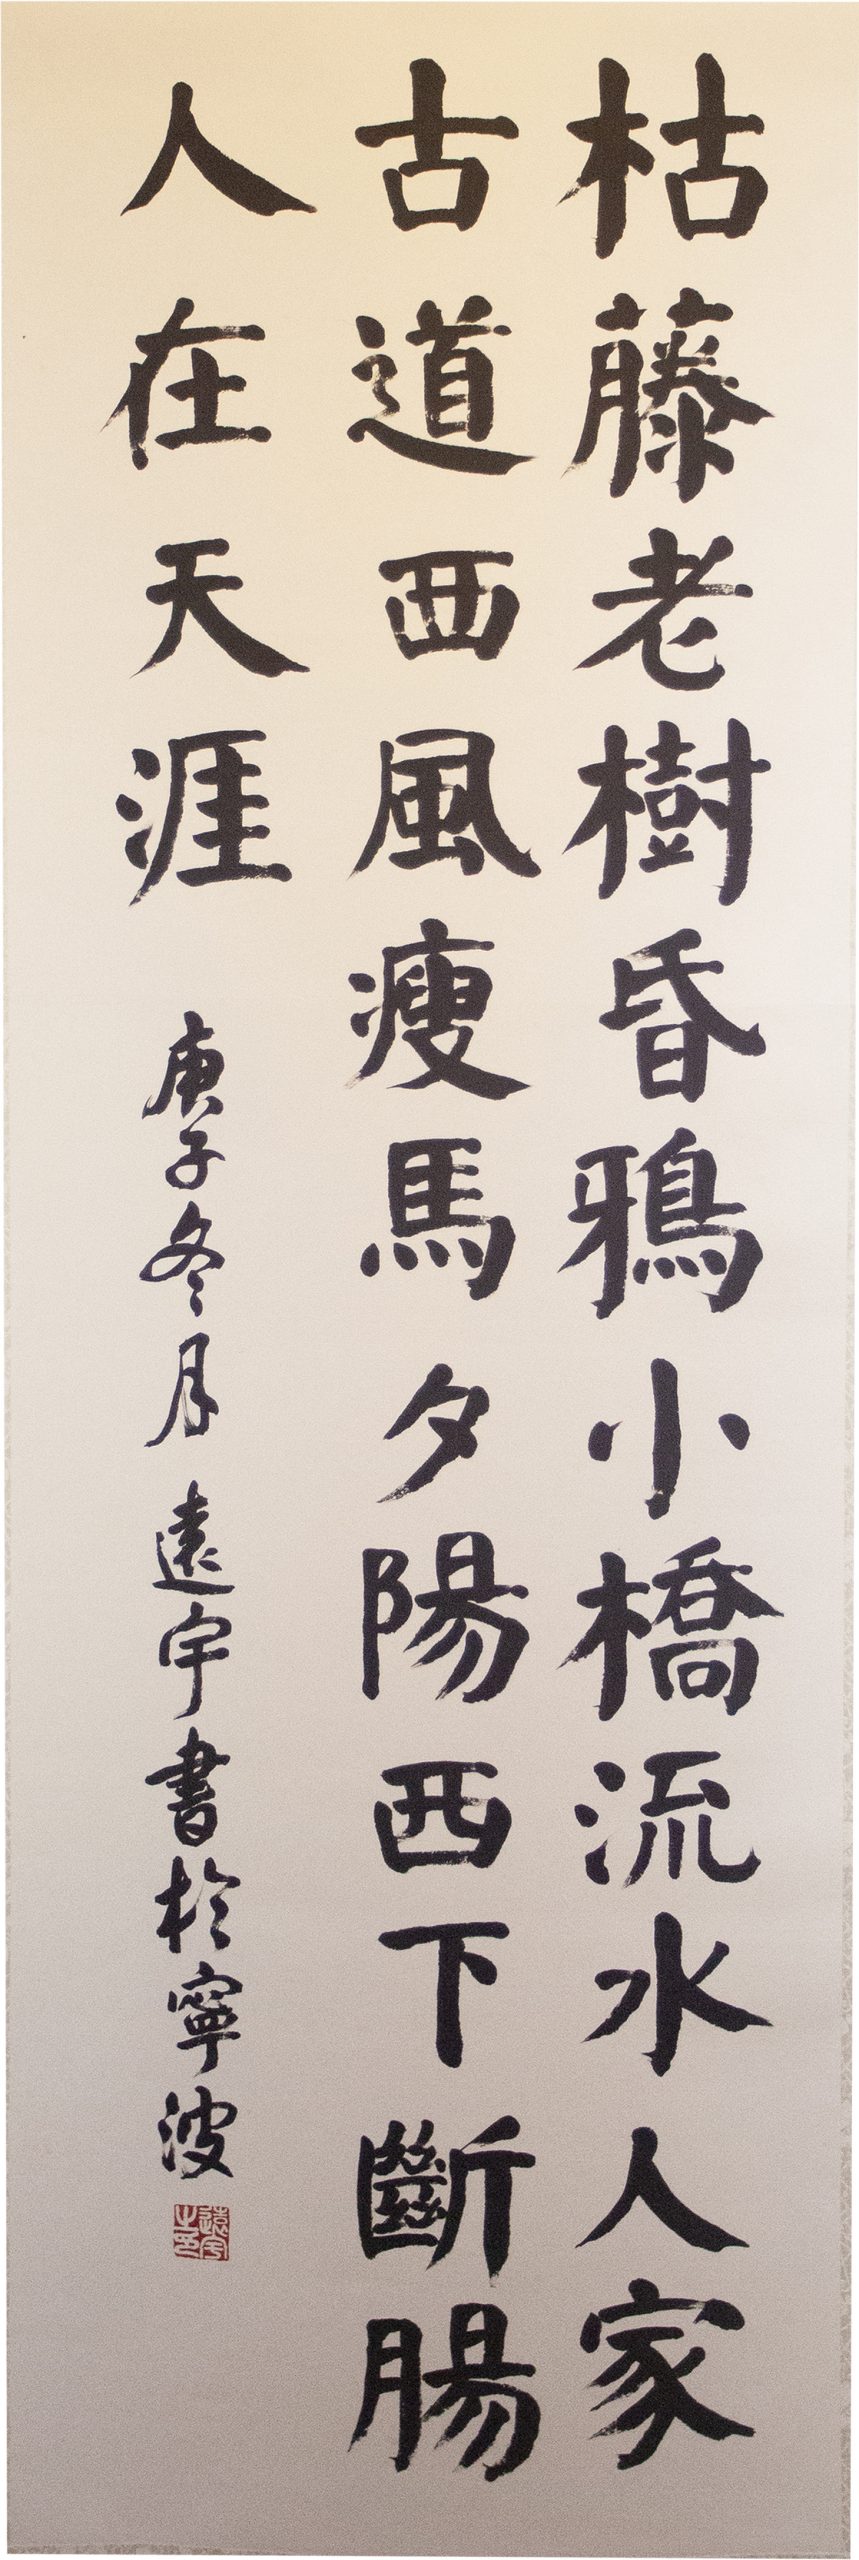 枯藤老樹昏鴉小橋流水人家
古道西風瘦馬夕陽西下斷腸
人在天涯
庚子冬月遠宇書於寧波
遠宇之印